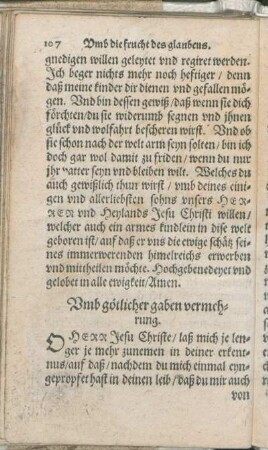 107 Vmb die frucht des glaubens.
gnedigen willen geleytet vnd regiret werden.
Ich beger nichts mehr noch hefftiger / denn
daß meine kinder dir dienen vnd gefallen mö-
gen. Vnd bin dessen gewiß / daß wenn sie dich
förchten / du sie widerumb segnen vnd jhnen
glück vnd wolfahrt bescheren wirst. Vnd ob
sie schon nach der welt arm seyn solten / bin ich
doch gar wol damit zu friden / wenn du nur
jhr vatter seyn vnd bleiben wilt. Welches du
auch gewißlich thun wirst / vmb deines eini-
gen vnd allerliebsten sohns vnsers HER-
REN vnd Heylands Jesu Christi willen /
welcher auch ein armes kindlein in dise welt
geboren ist / auf daß er vns die ewige schätz sei-
nes immerwerenden himelreichs erwerben
vnd mittheilen möchte. Hochgebenedeyet vnd
gelobet in alle ewigkeit / Amen.
Vmb götlicher gaben vermeh-
rung.
O HERR Jesu Christe / laß mich je len-
ger je mehr zunemen in deiner erkent-
nus / auf daß / nachdem du mich einmal eyn-
gepropfet hast in deinen leib / daß du mir auch
von